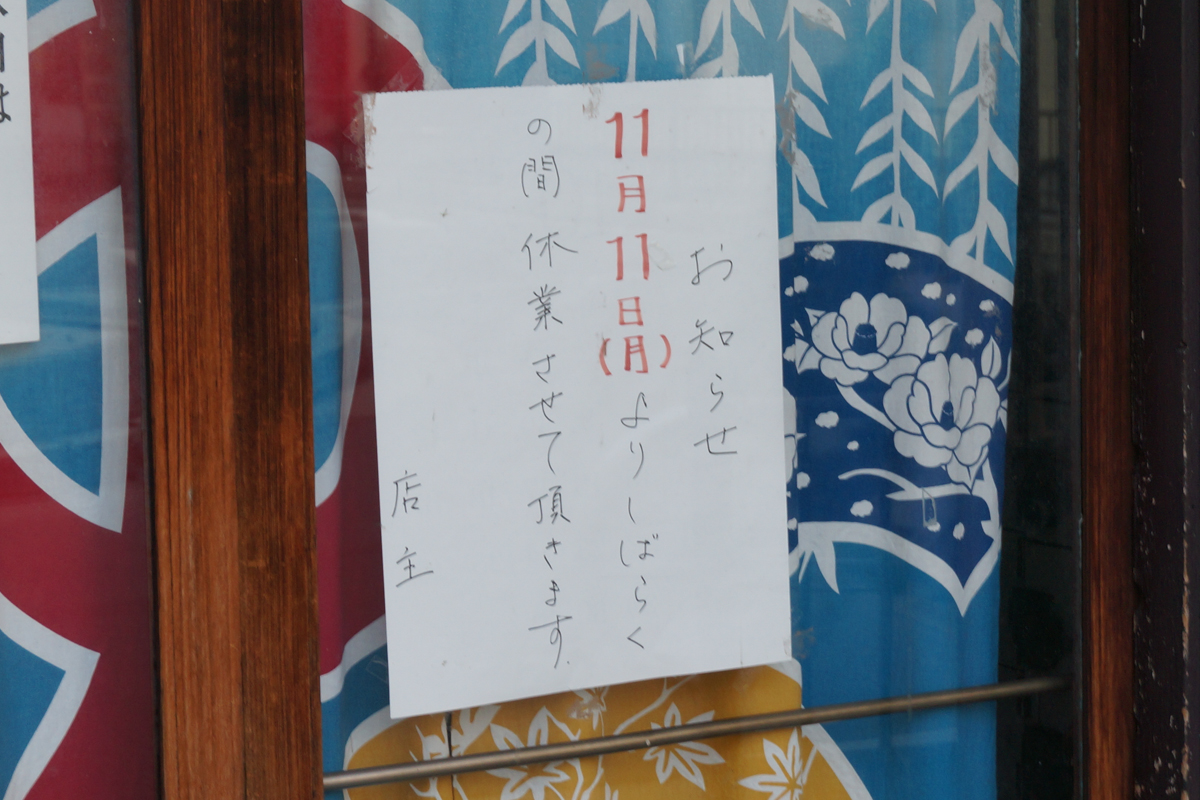 お知らせ
11月11日(月)よりしばらく
の間 休業させて頂きます.
店主